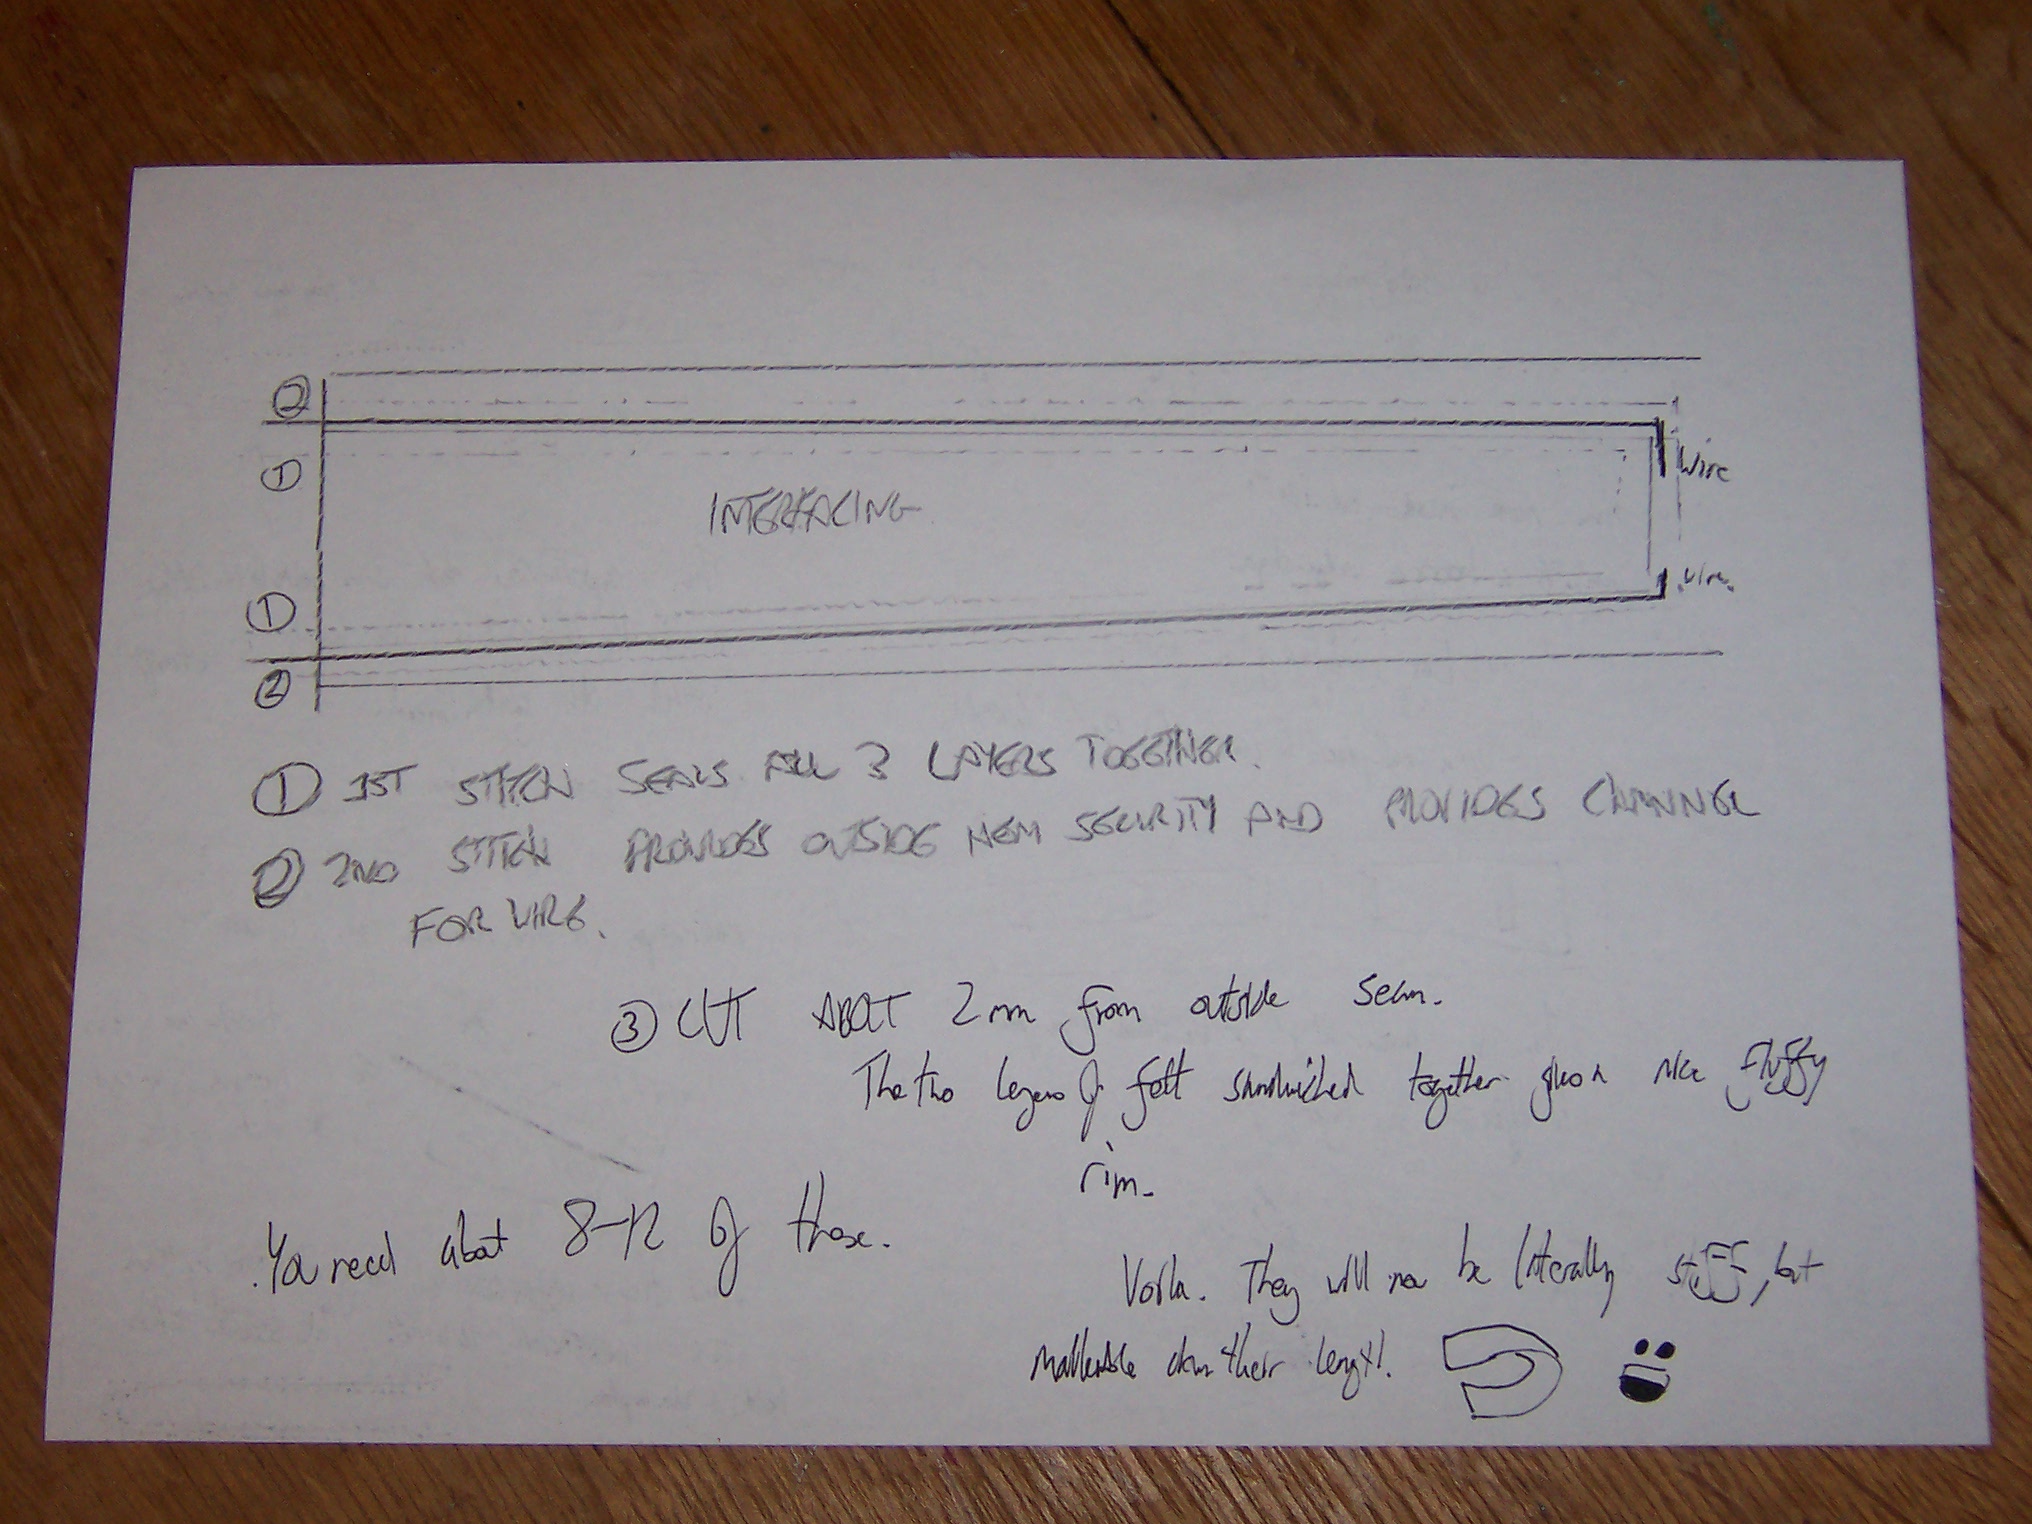 ②
①
INTERFACING
Wire
①
wire
②
① 1ST STITCH SEALS ALL 3 LAYERS TOGETHER.
② 2ND STITCH PROVIDES OUTSIDE HEM SECURITY AND PROVIDES CHANNEL
FOR WIRE.
③ CUT ABOUT 2mm from outside seam.
The two layers of felt sandwiched together give a nice fluffy
rim.
You need about 8-12 of those.
Voila. They will now be literally stiff, but
malleable down their length!